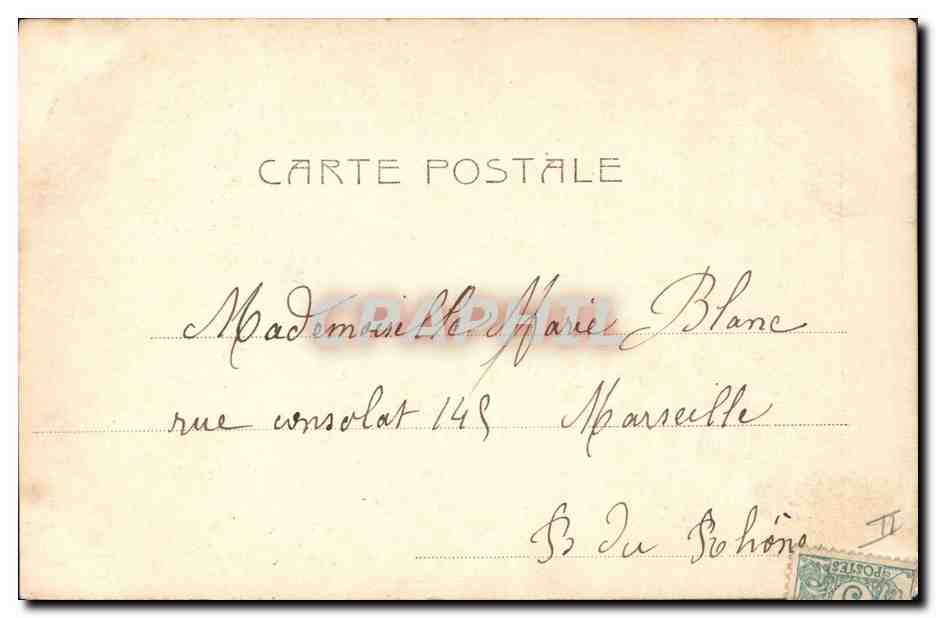 CARTE POSTALE
CPAPHIL
Mademoiselle Marie Blanc
rue consolat 145 Marseille
B du Rhône
II
POSTES